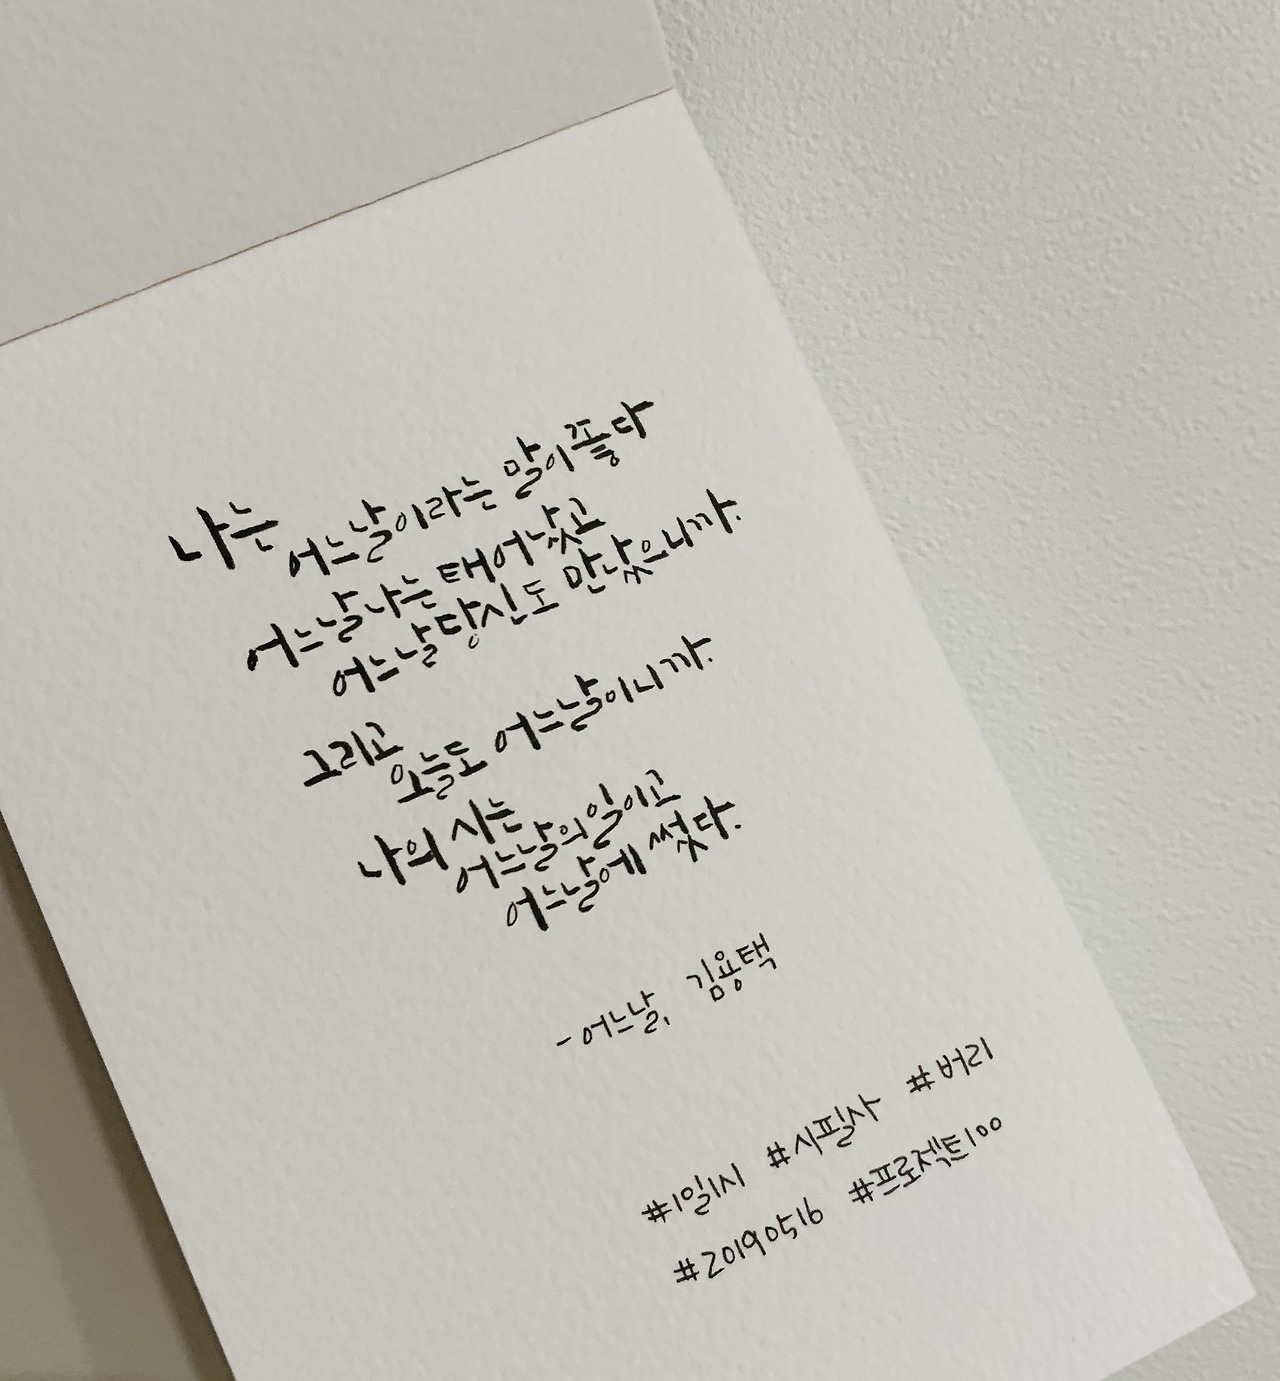 나는 어느날이라는 말이 좋다
어느날 나는 태어났고
어느날 당신도 만났으니까.
그리고 오늘도 어느날이니까.
나의 시는
어느날의 일이고
어느날에 썼다.
- 어느날, 김용택
#1일1시 #시필사 #버리
#20190516 #프로젝트100